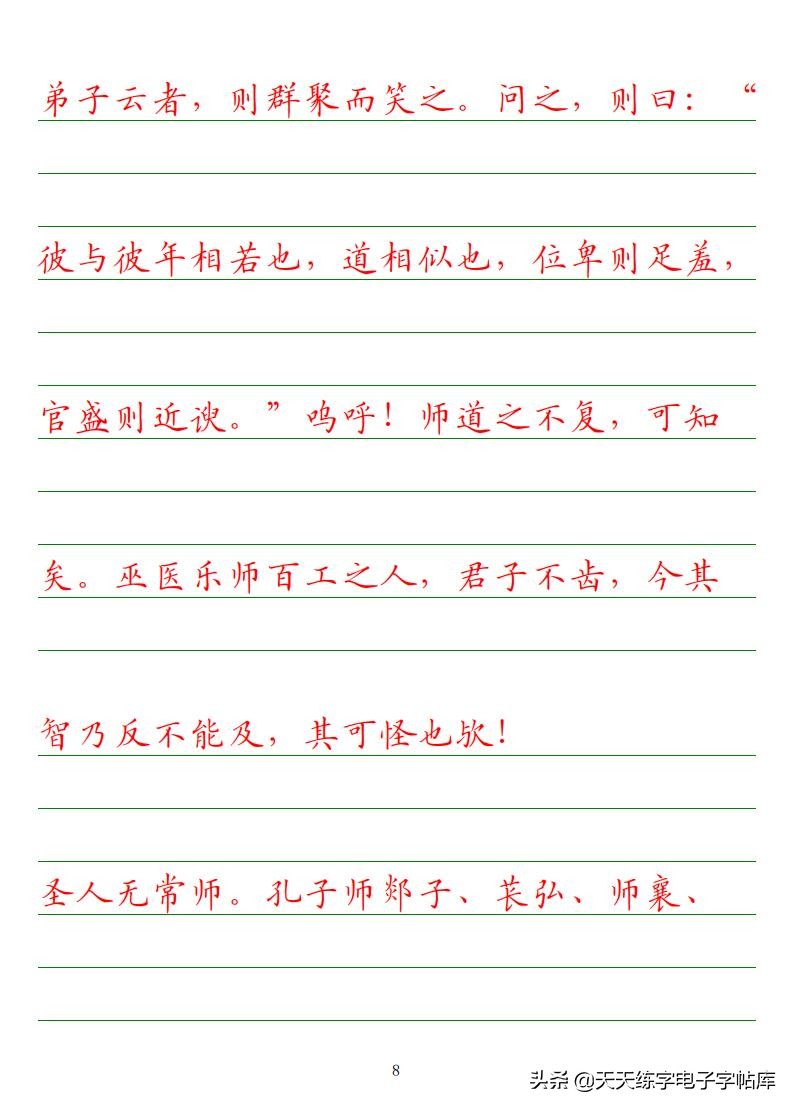 弟子云者，则群聚而笑之。问之，则曰：“
彼与彼年相若也，道相似也，位卑则足羞，
官盛则近谀。”呜呼！师道之不复，可知
矣。巫医乐师百工之人，君子不齿，今其
智乃反不能及，其可怪也欤！
圣人无常师。孔子师郯子、苌弘、师襄、
8
头条 @天天练字电子字帖库